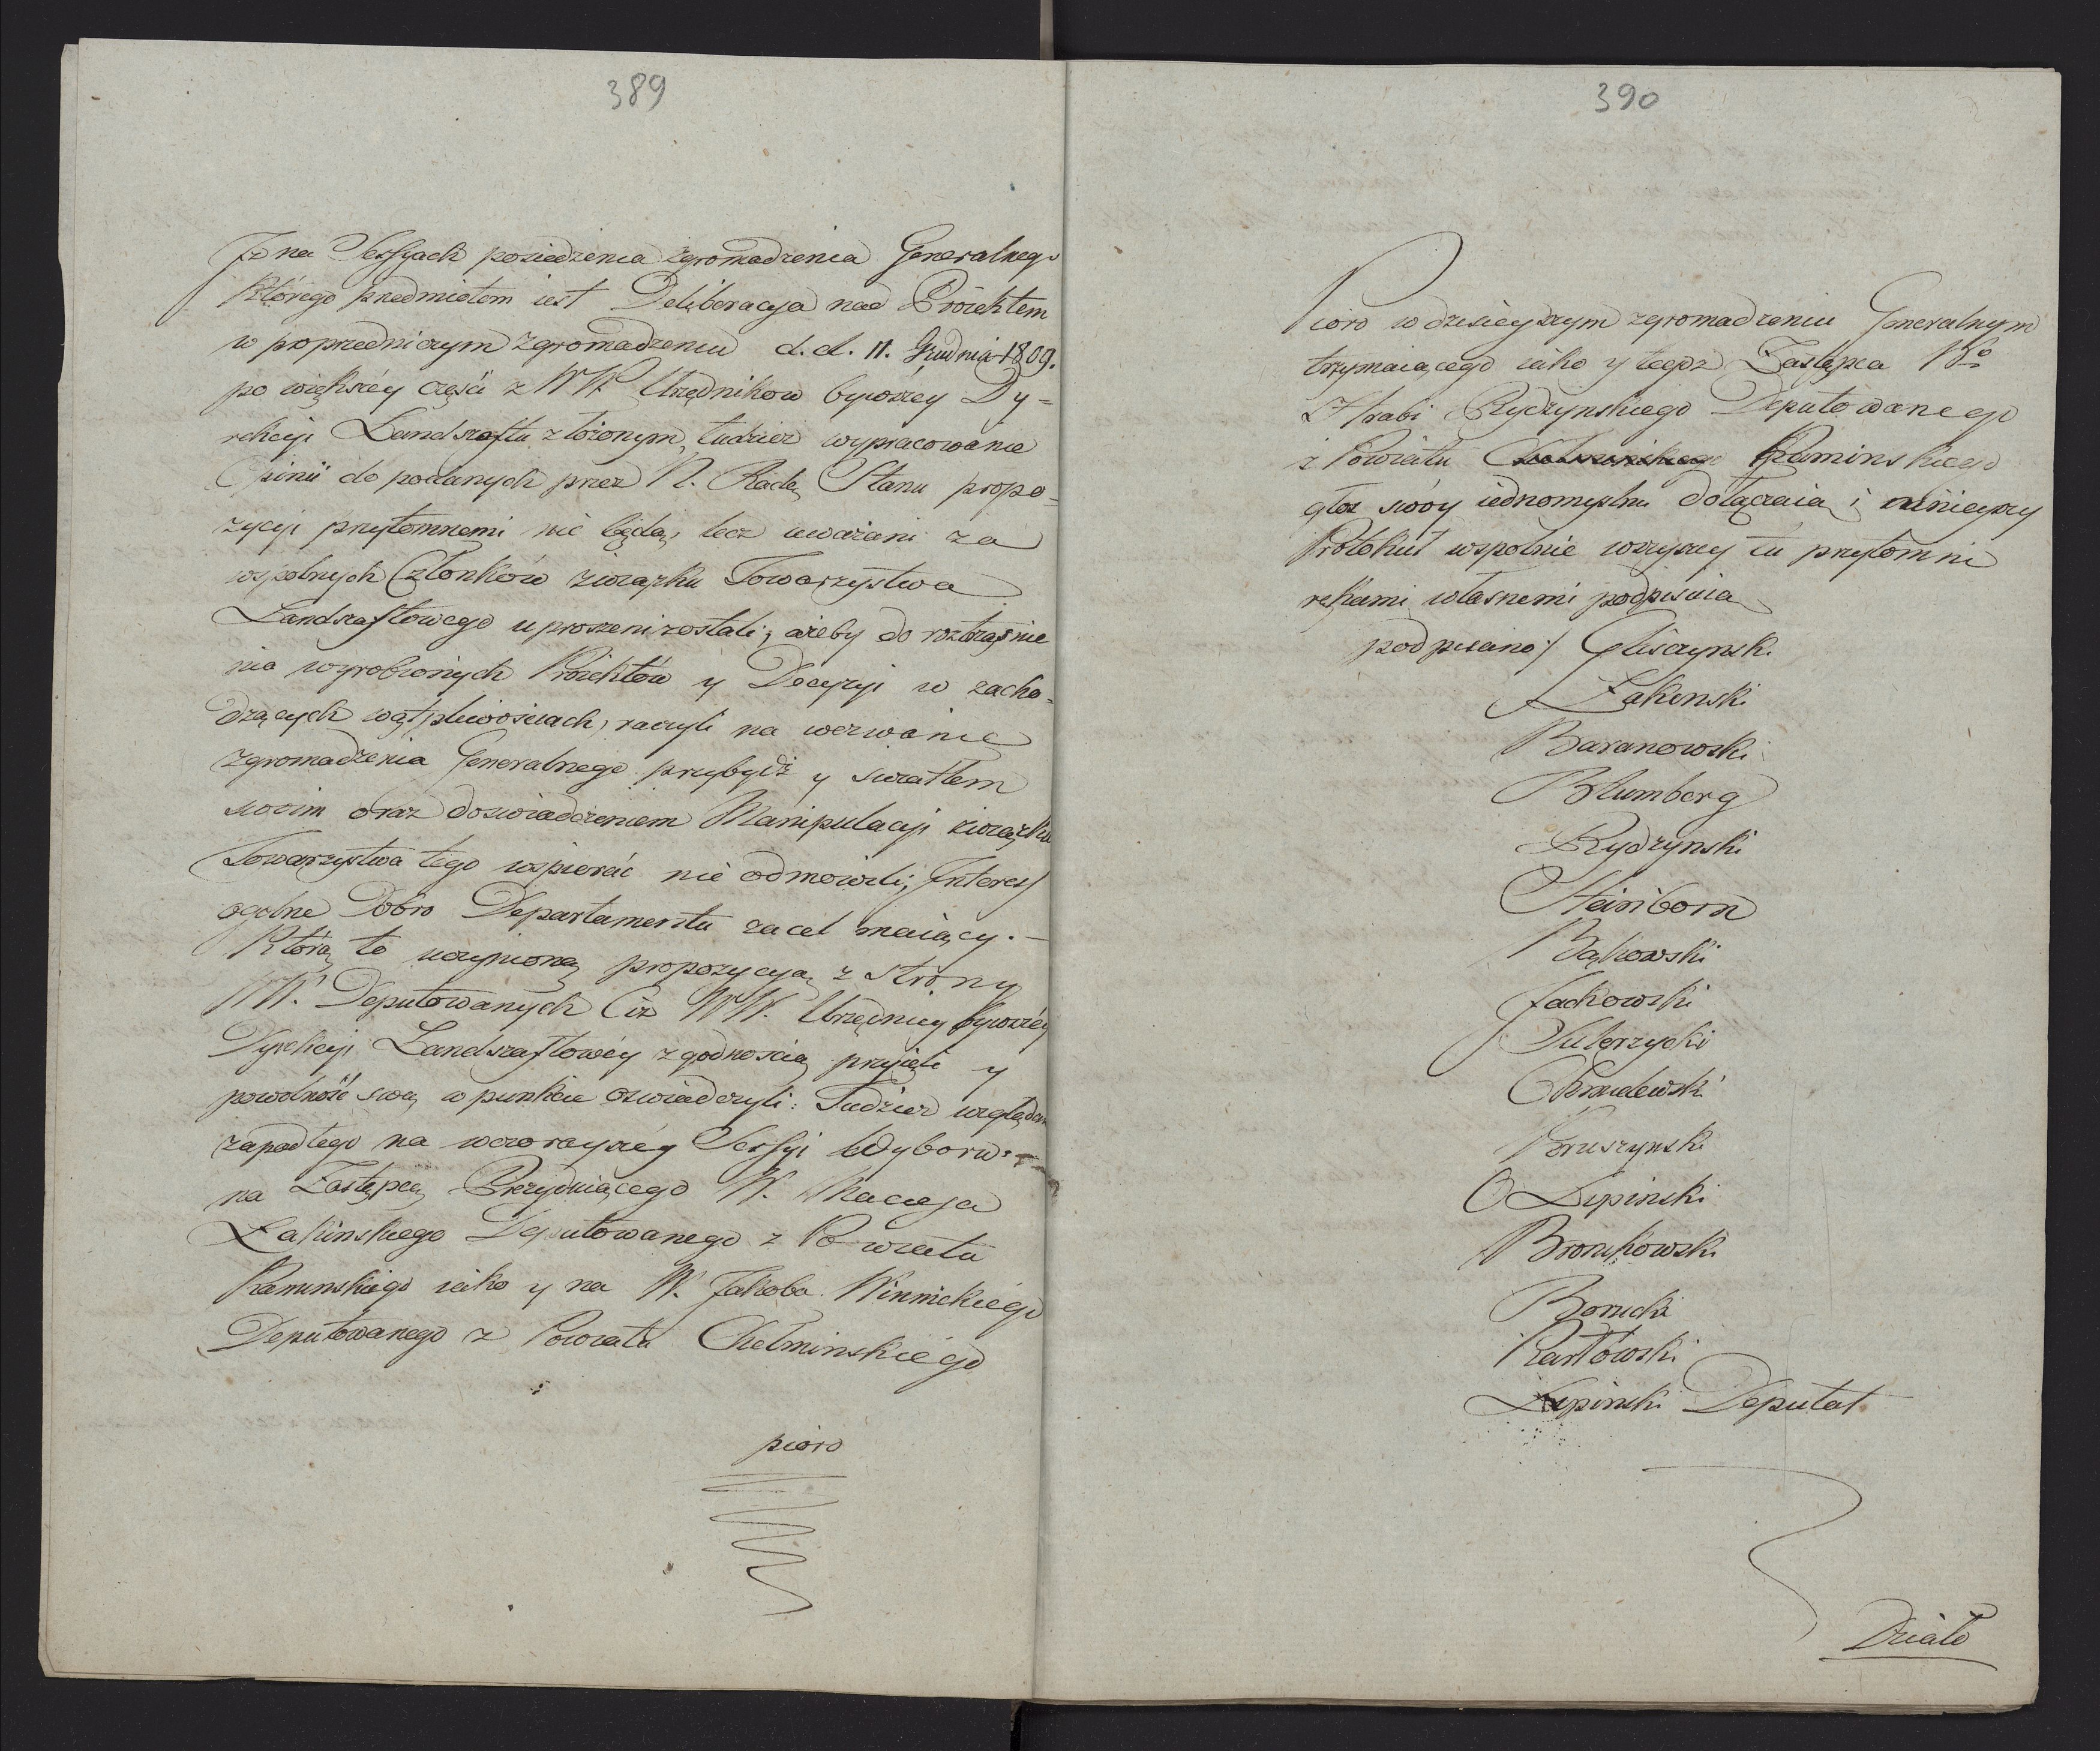 389
Iż na Sessyach posiedzenia zgromadzenia Generalnego
Którego przedmiotem iest Deliberacya nad Proiektem
w poprzedniczym zgromadzeniu d. d. 11. Grudnia 1809.
po większéy części z WW Urzędnikow bywszéy Dy-
rekcyi Landszaftu złożonym, tudzież wypracowanie
Opinii do podanych przez N. Radę Stanu propo-
zycyi przytomnemi nie będą, lecz uważani za
wspolnych Członków związku Towarzystwa
Landszaftowego uproszeni zostali, ażeby do roztrząśnie
nia wyrobionych Proiektów y Decyzyi w zacho-
dzących wątpliwościach, raczyli na wezwanie
zgromadzenia Generalnego przybydź y swiatłem
swoim oraz doswiadczeniem Manipulacyi związku
Towarzystwa tego wspierać nie odmowili, Interess
ogolne Dobro Departamentu za cel maiący. —
Którą to uczynioną propozycyą z strony
WW. Deputowanych Ciż WW. Urzędnicy bywszéy
Dyrekcyi Landszaftowéy z godnoscią przyięli y
powolność swą w punkcie oswiadczyli: Tudzież względem
zapadłego na wczorayszéy Sessyi Wyboru
na Zastępcę Prezyduiącego W. Macieja
Łakinskiego Deputowanego z Powiatu
Kaminskiego iako y na W. Jakoba Winnickiégo
Deputowanego z Powiatu Chełminskiégo
pioro
390
Pioro w dzisieyszym zgromadzeniu Generalnym
trzymaiącego iako y tegoż Zastępca
Hrabi Rydzynskiego Deputowanego
z Powiatu Chełminskiego Kaminskiego
głos swóy iednomyslnie dołączaią i ninieyszy
Protokuł wspolnie wszyscy tu przytomni
rękami własnemi podpisuią
podpisano/ Gliszynski
Łakinski
Baranowski
Blumberg
Rydzynski
Steinborn
Bąkowski
Jackowski
Sulerzycki
Chmielewski
Kruszynski
O Lipinski
Bronikowski
Borucki
Karłowski
Lipinski Deputat
Działo